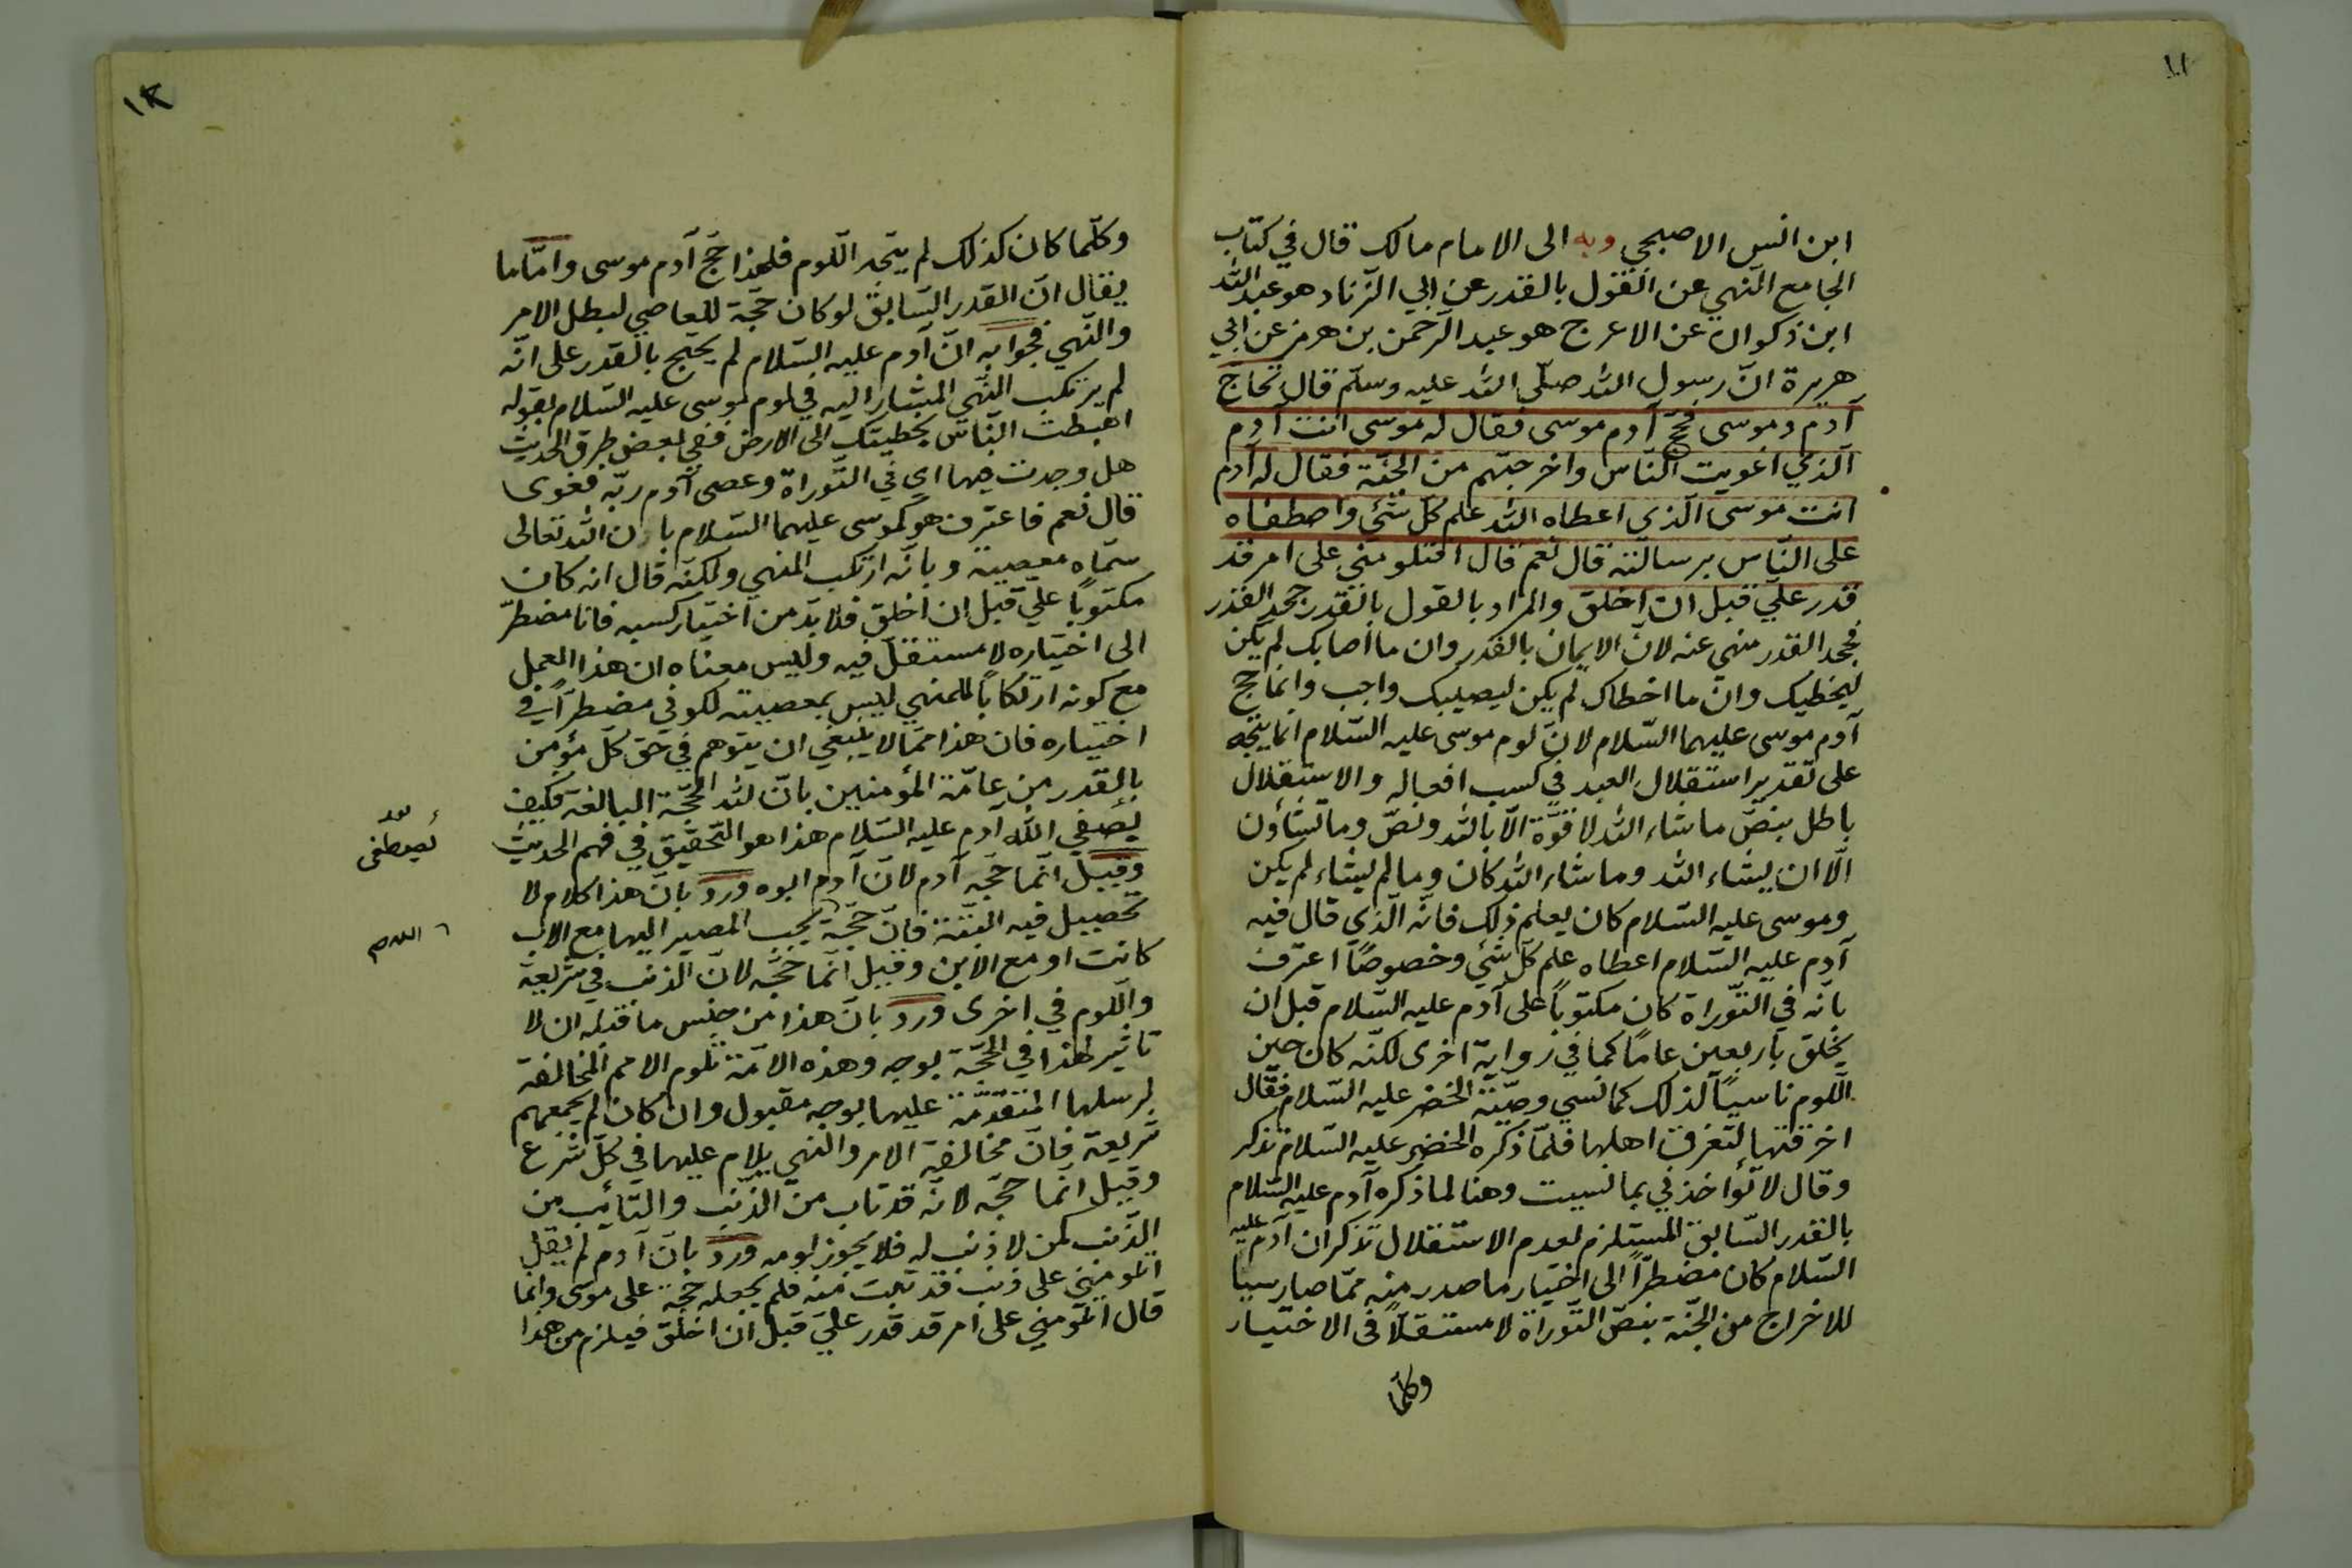 ١١
ابن انس الاصبحي وبه الى الامام مالك قال في كتاب
الجامع النّهي عن القول بالقدر عن ابي الزّناد هو عبد الله
ابن ذكوان عن الاعرج هو عبد الرّحمن بن هرمز عن ابي
هريرة انّ رسول الله صلّى الله عليه وسلّم قال تحاجّ
آدم وموسى فحجّ آدم موسى فقال له موسى انت آدم
الّذي اغويت النّاس واخرجتهم من الجنّة فقال له آدم
انت موسى الّذي اعطاه الله علم كلّ شئ واصطفاه
على النّاس برسالته قال نعم قال افتلومني على امر قد
قدر عليّ قبل ان اخلق والمراد بالقول بالقدر جحد القدر
فجحد القدر منهي عنه لانّ الايمان بالقدر وان ما اصابك لم يكن
ليخطيك وانّ ما اخطاك لم يكن ليصيبك واجب وانّما حج
آدم موسى عليهما السّلام لانّ لوم موسى عليه السّلام انّما يتّجه
على تقدير استقلال العبد في كسب افعاله والاستقلال
باطل بنصّ ما شاء الله لا قوّة الّا بالله ونصّ وما تشاؤن
الّا ان يشاء الله وما شاء الله كان وما لم يشاء لم يكن
وموسى عليه السّلام كان يعلم ذلك فانّه الّذي قال فيه
آدم عليه السّلام اعطاه علم كلّ شئ وخصوصًا اعترف
بانه في التّوراة كان مكتوبًا على آدم عليه السّلام قبل ان
يخلق باربعين عامًا كما في رواية اخرى لكنّه كان حين
اللّوم ناسيًا لذلك كما نسي وصيّة الخضر عليه السّلام فقال
اخرقتها لتغرق اهلها فلمّا ذكره الخضر عليه السّلام تذكر
وقال لا تؤاخذني بما نسيت وهنا لما ذكره آدم عليه السّلام
بالقدر السّابق المستلزم لعدم الاستقلال تذكر ان آدم عليه
السّلام كان مضطرّاً الى اختيار ما صدر منه ممّا صار سببا
للاخراج من الجنّة بنصّ التّوراة لا مستقلًا في الاختيار
وكلّما
١٢
وكلّما كان كذلك لم يتّجه اللّوم فلهذا حجّ آدم موسى وامّا ما
يقال انّ القدر السّابق لو كان حجّة للعاصي لبطل الامر
والنّهي فجوابه انّ آدم عليه السّلام لم يحتج بالقدر على انّه
لم يرتكب النّهي المشار اليه في لوم موسى عليه السّلام بقوله
اهبطت النّاس بخطيئتك الى الارض ففي بعض طرق الحديث
هل وجدت فيها اي في التّوراة وعصى آدم ربّه فغوى
قال نعم فاعترف هو كموسى عليهما السّلام بان الله تعالى
سمّاه معصية وبانّه ارتكب المنهي ولكنّه قال انه كان
مكتوبًا عليّ قبل ان اخلق فلا بدّ من اختيار كسبه فانا مضطرّ
الى اختياره لا مستقلّ فيه وليس معناه ان هذا العمل
مع كونه ارتكابًا للمنهي ليس بمعصية لكوني مضطرّاً في
اختياره فان هذا ممّا لا ينبغي ان يتوهم في حق كل مؤمن
بالقدر من عامّة المؤمنين بانّ لله الحجّة البالغة فكيف
بصفي اللّٰه آدم عليه السّلام هذا هو التّحقيق في فهم الحديث
وقيل انّما حجّه آدم لانّ آدم ابوه وردّ بانّ هذا كلام لا
تحصيل فيه البتّة فانّ حجّة يجب المصير اليها مع الاب
كانت او مع الابن وقيل انّما حجّه لانّ الذنب في شريعة
واللّوم في اخرى وردّ بانّ هذا من جنس ما قبله ان لا
تاثير لهذا في الحجّة بوجه وهذه الامّة تلوم الامم المخالفة
لرسلها المتقدّمة عليها بوجه مقبول وان كان لم يجمعهم
شريعة فانّ مخالفة الامر والنهي يلام عليهما في كلّ شرع
وقيل انّما حجّه لانّه قد تاب من الذّنب والتّائب من
الذّنب كمن لا ذنب له فلا يجوز لومه وردّ بانّ آدم لم يقل
اتلومنني على ذنب قد تبت منه فلم يجعله حجّة على موسى وانّما
قال اتلومني على امر قد قدر عليّ قبل ان اخلق فيلزم من هذا